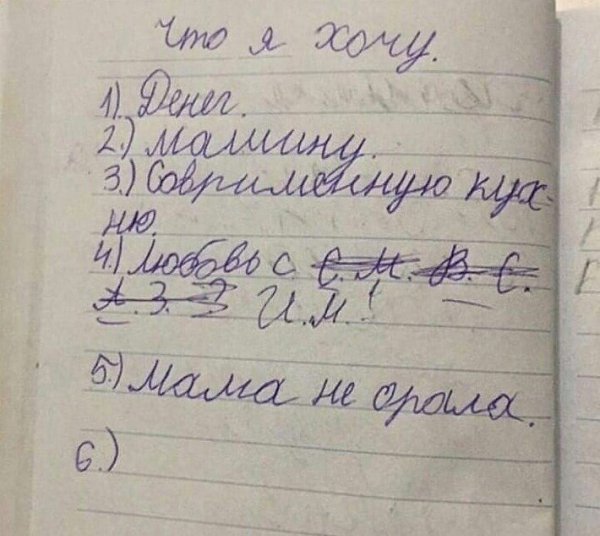 Что я хочу.
1). Денег.
2.) машину.
3.) Совrименную кух-
ню.
4.) любовь с С. М. В. С.
А. З. И.М.!
5.) Мама не орала.
6.)